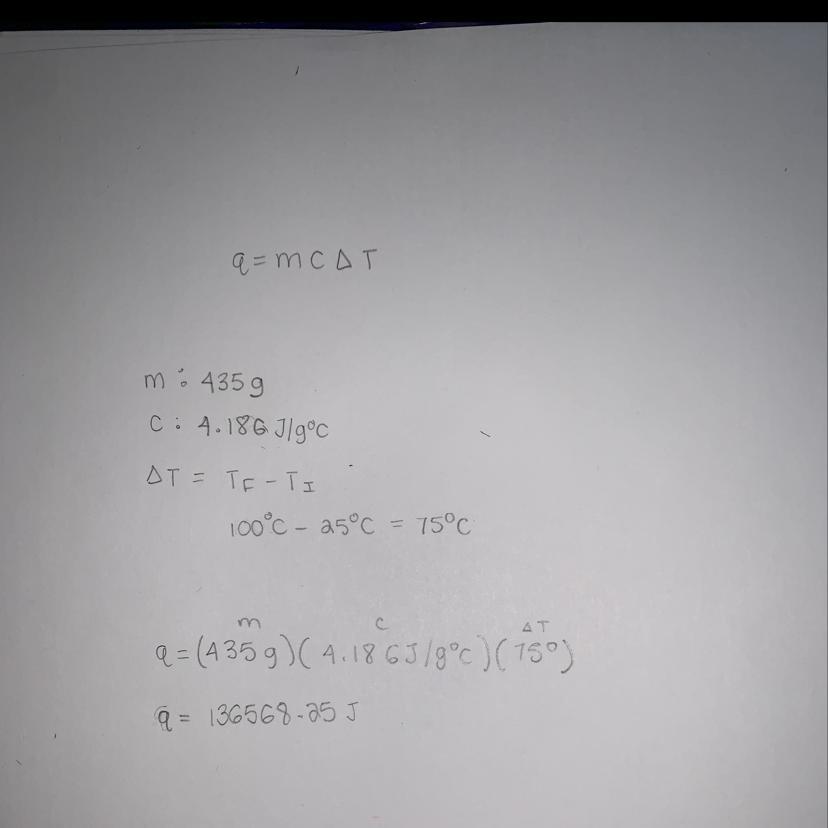 q = m C Δ T
m : 435 g
C : 4.186 J/g°C
ΔT = TF - TI
100°C - 25°C = 75°C
m C ΔT
q = (435 g)( 4.186 J/g°c )( 75° )
q = 136568.25 J